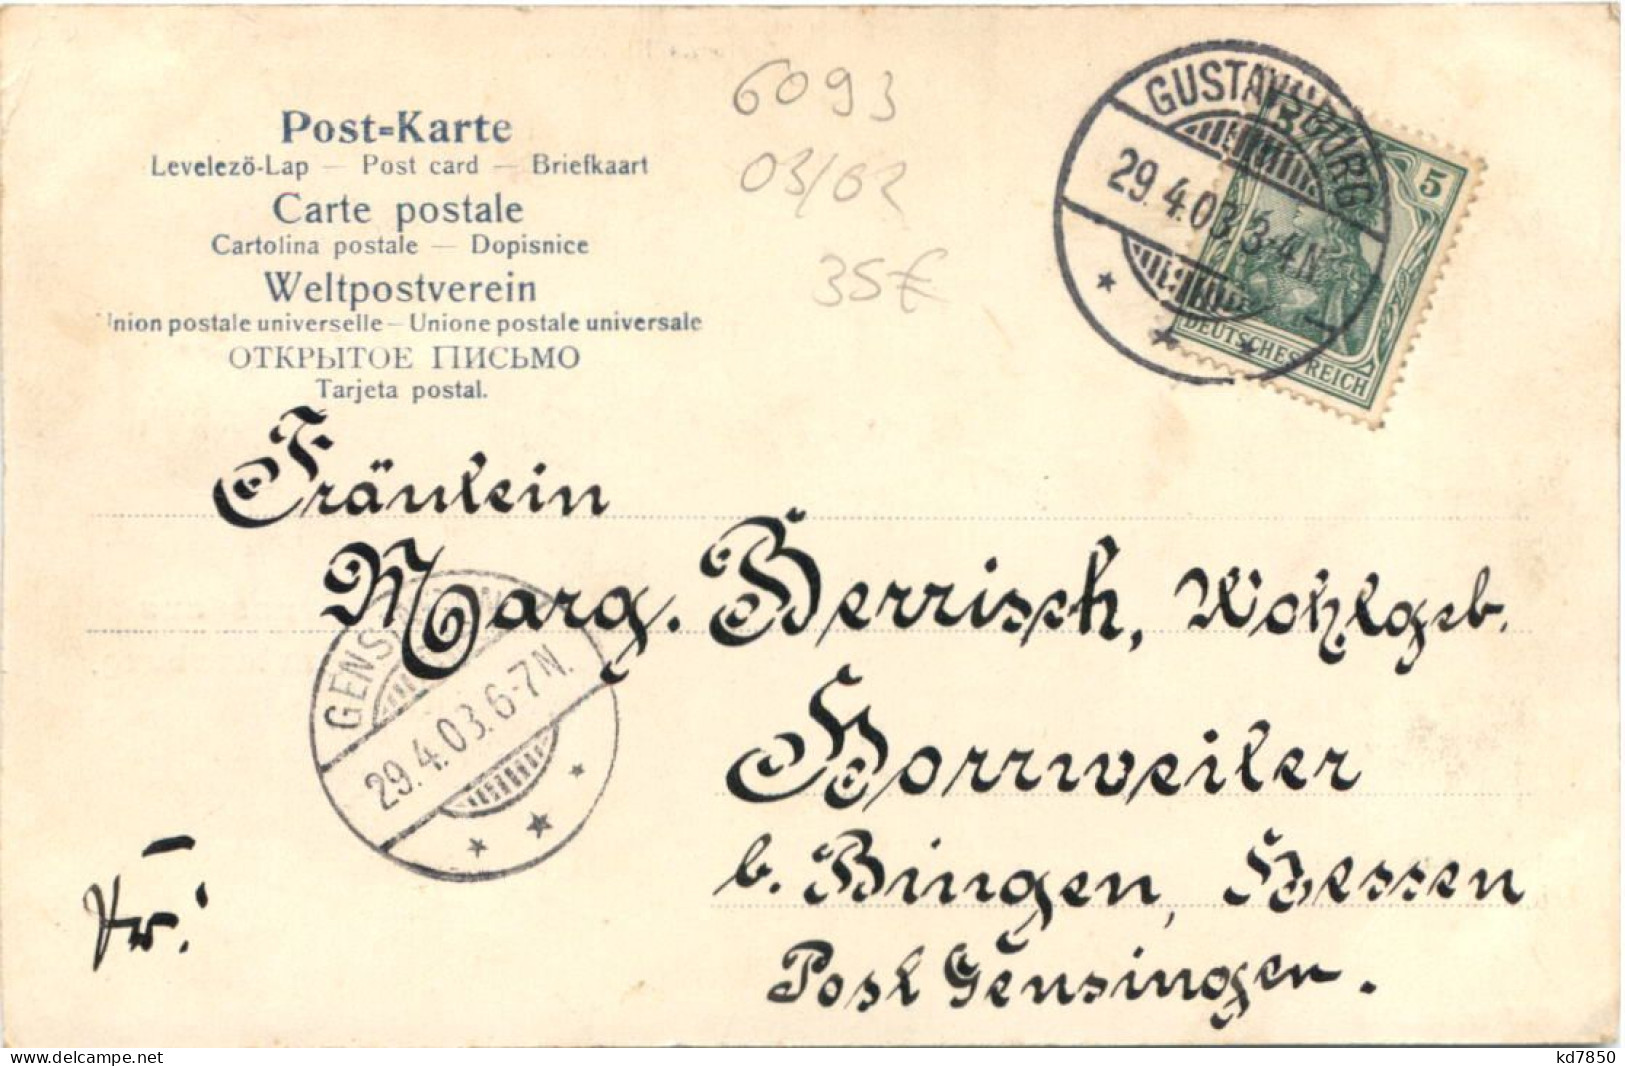 Post=Karte
Levelező-Lap — Post card — Briefkaart
Carte postale
Cartolina postale — Dopisnice
Weltpostverein
Union postale universelle — Unione postale universale
ОТКРЫТОЕ ПИСЬМО
Tarjeta postal.
6093
03/02
35€
GUSTAVSBURG
29.4.03 3-4N.
5
DEUTSCHES REICH
Fräulein
Marg. Berrisch, Wohlgeb.
Horrweiler
b. Bingen, Hessen
Post Gensingen.
GENSINGEN
29.4.03. 6-7N.
fr.
www.delcampe.net
kd7850